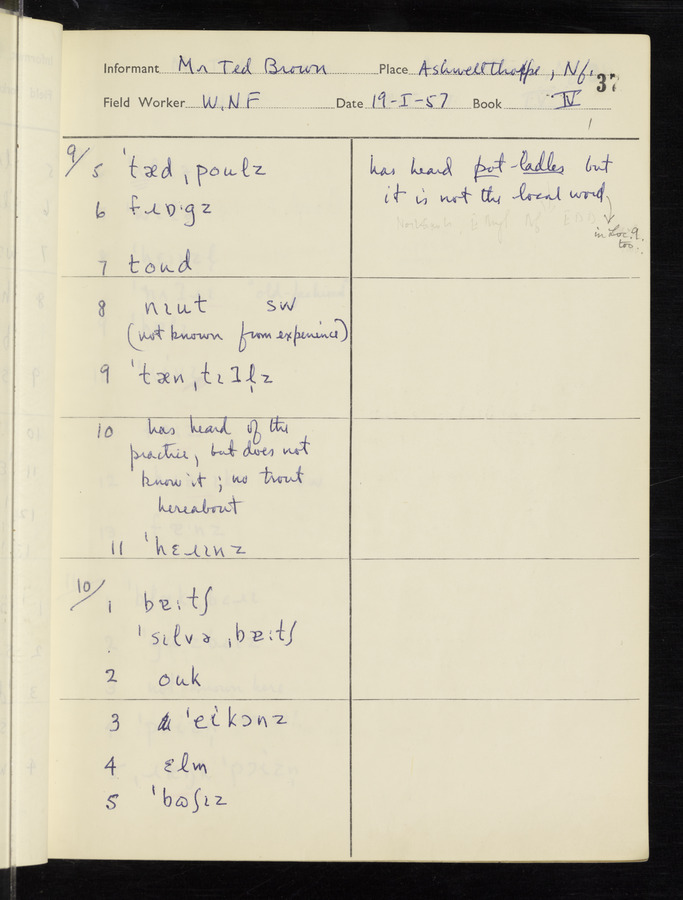 Informant Mr Ted Brown Place Ashwellthorpe, Nf. 37
Field Worker W.N F Date 19-I-57 Book IV
9/ 5 ˈtæd ˌpoulz
6 fɹɒ·gz
7 toud
8 nɪut sw
(not known from experience)
9 ˈtæn ˌtɪ
10 has heard of the
practice, but does not
know it ; no trout
hereabout
11 ˈhɛɹɪnz
10/ 1 bɐːtʃ
ˈsɪlvə ˌbɐːtʃ
2 ouk
3 ˈeikɔnz
4 ɛlm
5 ˈbɷʃɪz
has heard pot-ladles but
it is not the local word
in Loc. 9.
too.